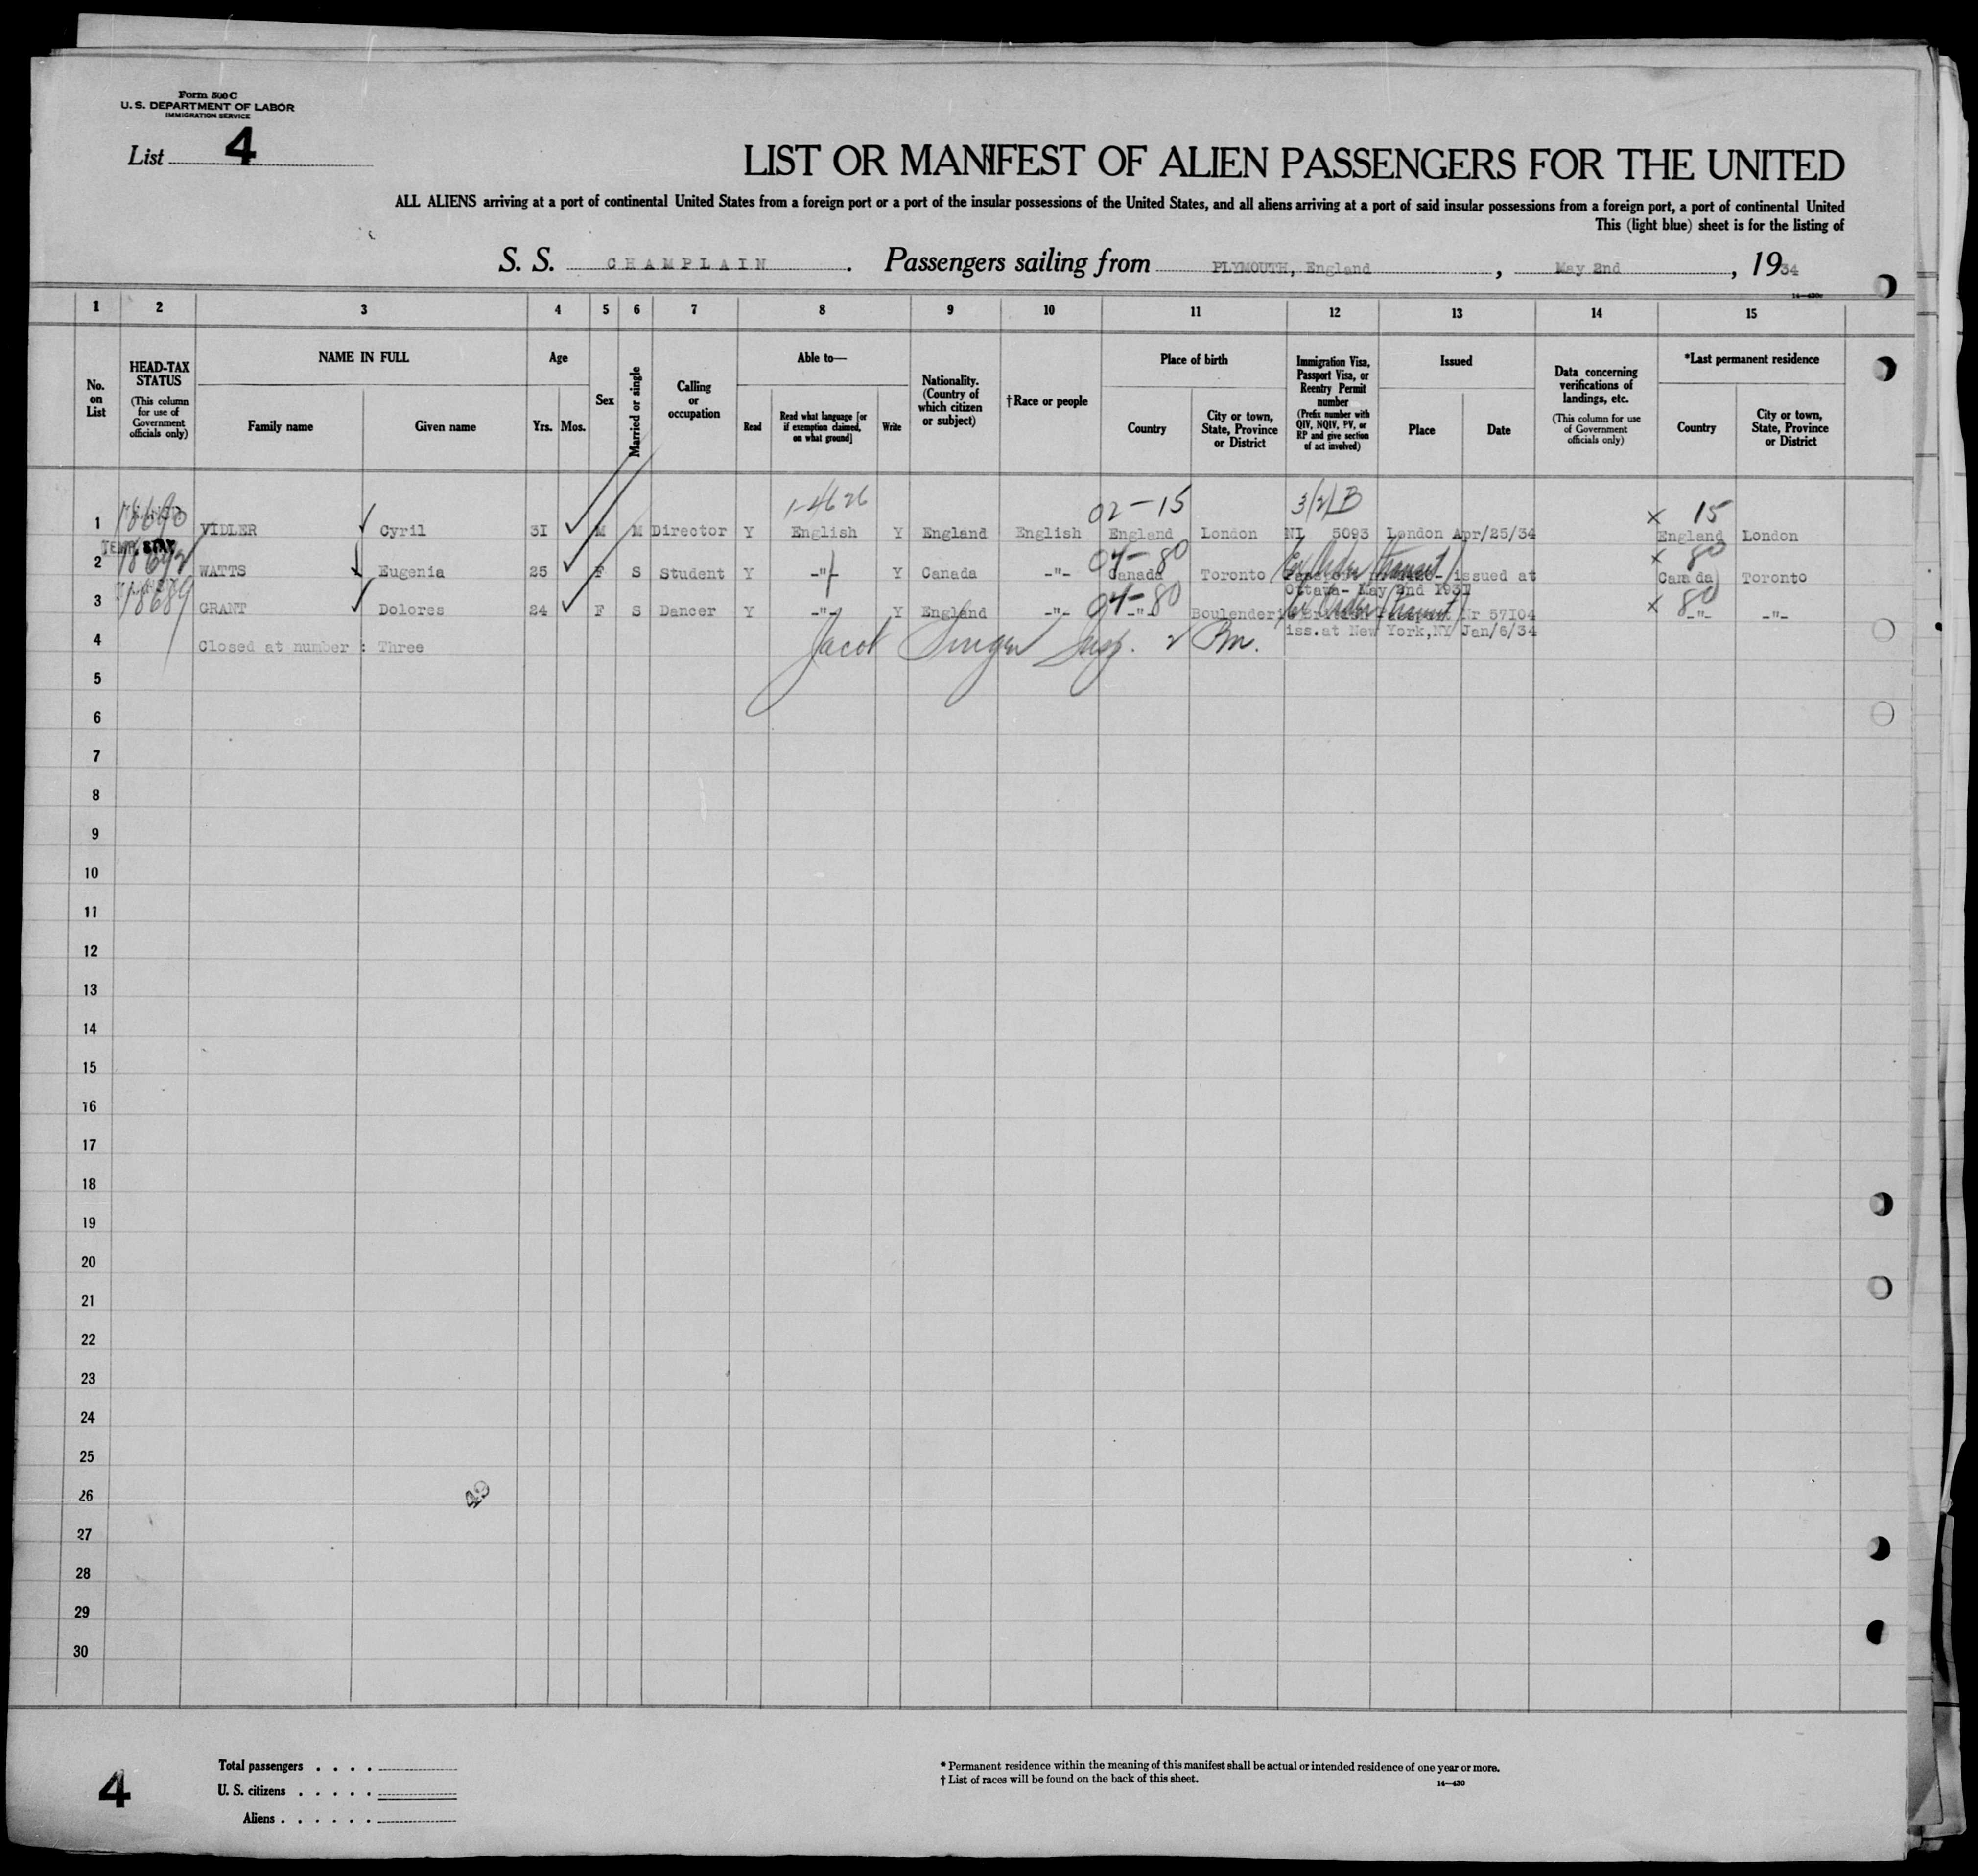 Form 500 C
U. S. DEPARTMENT OF LABOR
IMMIGRATION SERVICE
List 4
LIST OR MANIFEST OF ALIEN PASSENGERS FOR THE UNITED
ALL ALIENS arriving at a port of continental United States from a foreign port or a port of the insular possessions of the United States, and all aliens arriving at a port of said insular possessions from a foreign port, a port of continental United
This (light blue) sheet is for the listing of
S. S. CHAMPLAIN . Passengers sailing from PLYMOUTH, England , May 2nd , 1934
14—430c
1 2 3 4 5 6 7 8 9 10 11 12 13 14 15
No. on List
HEAD-TAX STATUS (This column for use of Government officials only)
NAME IN FULL
Family name Given name
Age
Yrs. Mos.
Sex
Married or single
Calling or occupation
Able to—
Read Read what language [or if exemption claimed, on what ground] Write
Nationality. (Country of which citizen or subject)
† Race or people
Place of birth
Country City or town, State, Province or District
Immigration Visa, Passport Visa, or Reentry Permit number (Prefix number with QIV, NQIV, PV, or RP and give section of act involved)
Issued
Place Date
Data concerning verifications of landings, etc. (This column for use of Government officials only)
*Last permanent residence
Country City or town, State, Province or District
1-4626 02-15 3/2/B x 15
1 18690 VIDLER Cyril 31 M M Director Y English Y England English England London NI 5093 London Apr/25/34 England London
TEMP. STAY 04-80 x 80
2 18692 WATTS Eugenia 25 F S Student Y -"- Y Canada -"- Canada Toronto issued at Canada Toronto
Ottawa- May 2nd 1931
04-80 x 80
3 18689 GRANT Dolores 24 F S Dancer Y -"- Y England -"- -"- Boulender Nr 57104 -"- -"-
iss. at New York,NY Jan/6/34
4 Closed at number : Three Jacob Singer Insp.
5
6
7
8
9
10
11
12
13
14
15
16
17
18
19
20
21
22
23
24
25
26
49
27
28
29
30
Total passengers . . . .
U. S. citizens . . . . .
Aliens . . . . . .
4
* Permanent residence within the meaning of this manifest shall be actual or intended residence of one year or more.
† List of races will be found on the back of this sheet.
14—430